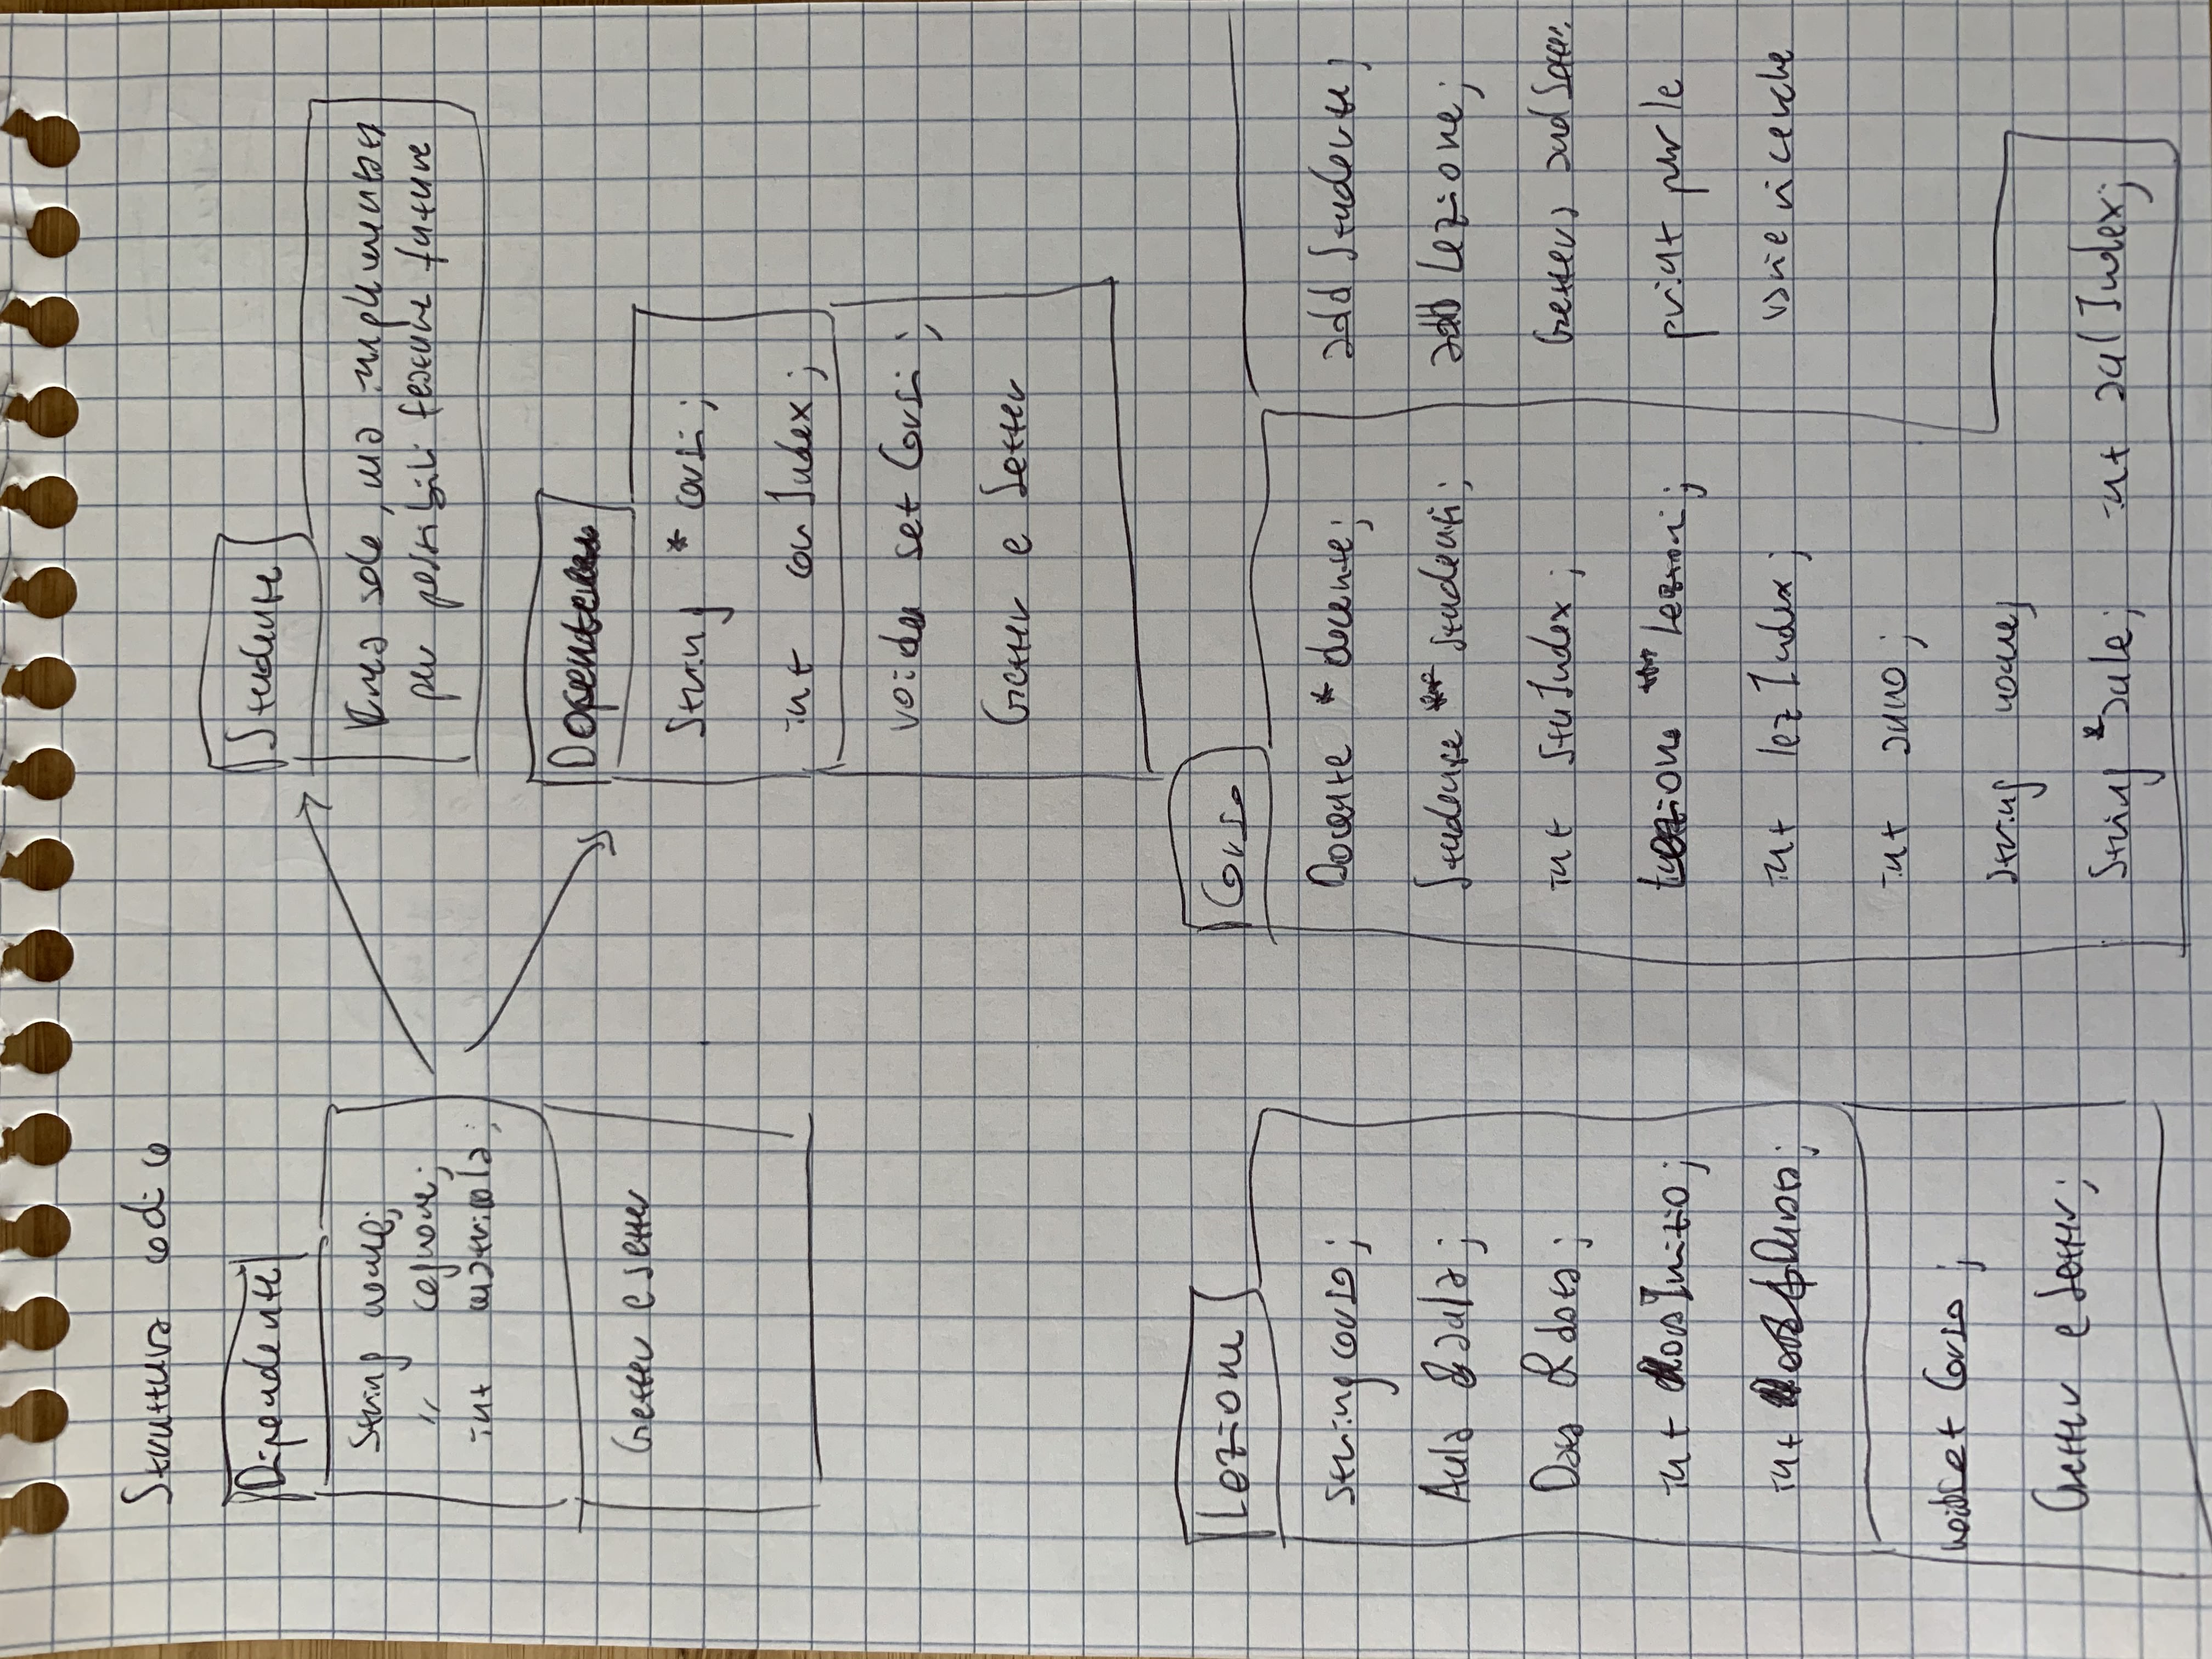 Struttura codice
Dipendente
String nome;
" cognome;
int matricola;
Getter e setter
Studente
sole, ma implementata
per possibili feature future
String * corsi;
int corIndex;
void set Corsi;
Getter e Setter
Lezione
String corso;
Aula & aula;
Data & data;
int oraInizio;
int Durata;
void set Corso;
Getter e Setter;
Corso
Docente * docente;
Studente ** studenti;
int stuIndex;
Lezione ** Lezioni;
int lezIndex;
int anno;
String nome;
String *aule; int aulIndex;
add Studente;
add Lezione;
Getters and Setter.
print per le
varie ricerche